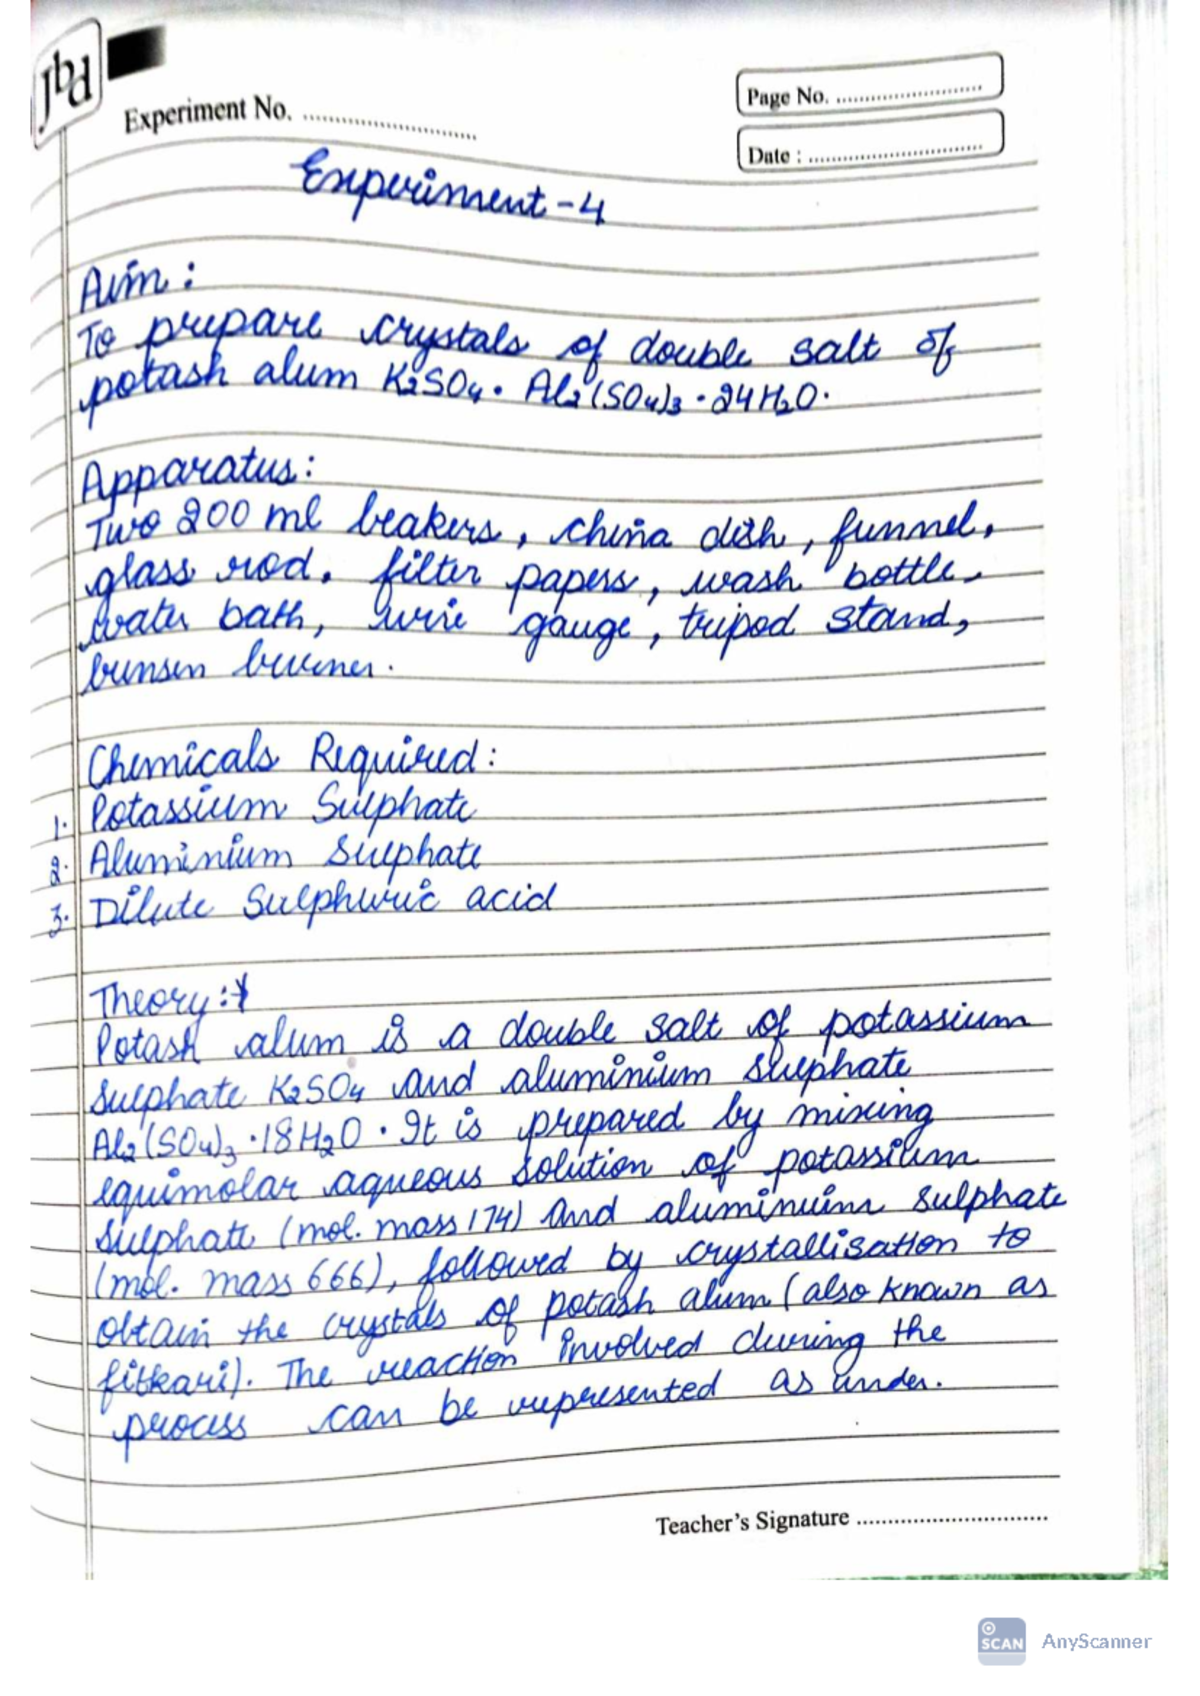 Jbd
Experiment No. ............................
Page No. ........................
Date : ............................
Experiment - 4
Aim :
To prepare crystals of double salt of
potash alum K₂SO₄ · Al₂(SO₄)₃ · 24H₂O.
Apparatus :
Two 200 ml beakers, china dish, funnel,
glass rod, filter papers, wash bottle,
water bath, wire gauge, tripod stand,
bunsen burner.
Chemicals Required :
1. Potassium Sulphate
2. Aluminium Sulphate
3. Dilute Sulphuric acid
Theory :
Potash alum is a double salt of potassium
sulphate K₂SO₄ and aluminium sulphate
Al₂(SO₄)₃ · 18H₂O. It is prepared by mixing
equimolar aqueous solution of potassium
sulphate (mol. mass 174) and aluminium sulphate
(mol. mass 666), followed by crystallisation to
obtain the crystals of potash alum (also known as
fitkari). The reaction involved during the
process can be represented as under.
Teacher's Signature ................................
SCAN AnyScanner